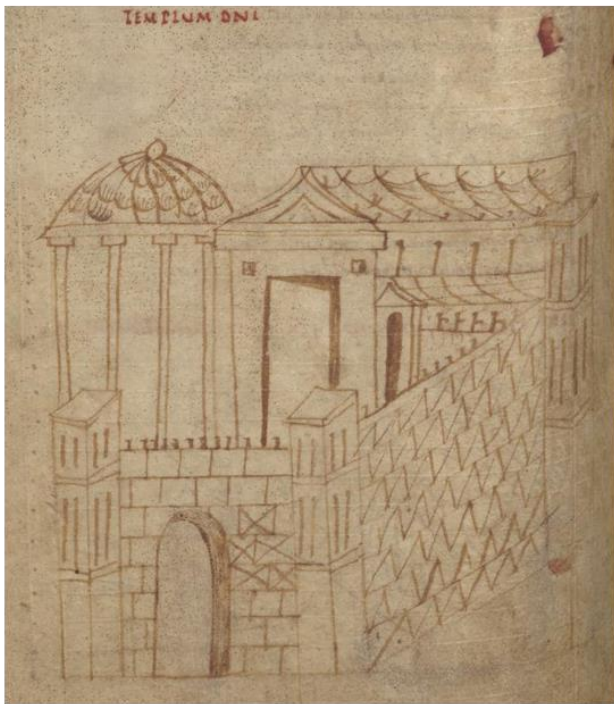 TEMPLUM DNI